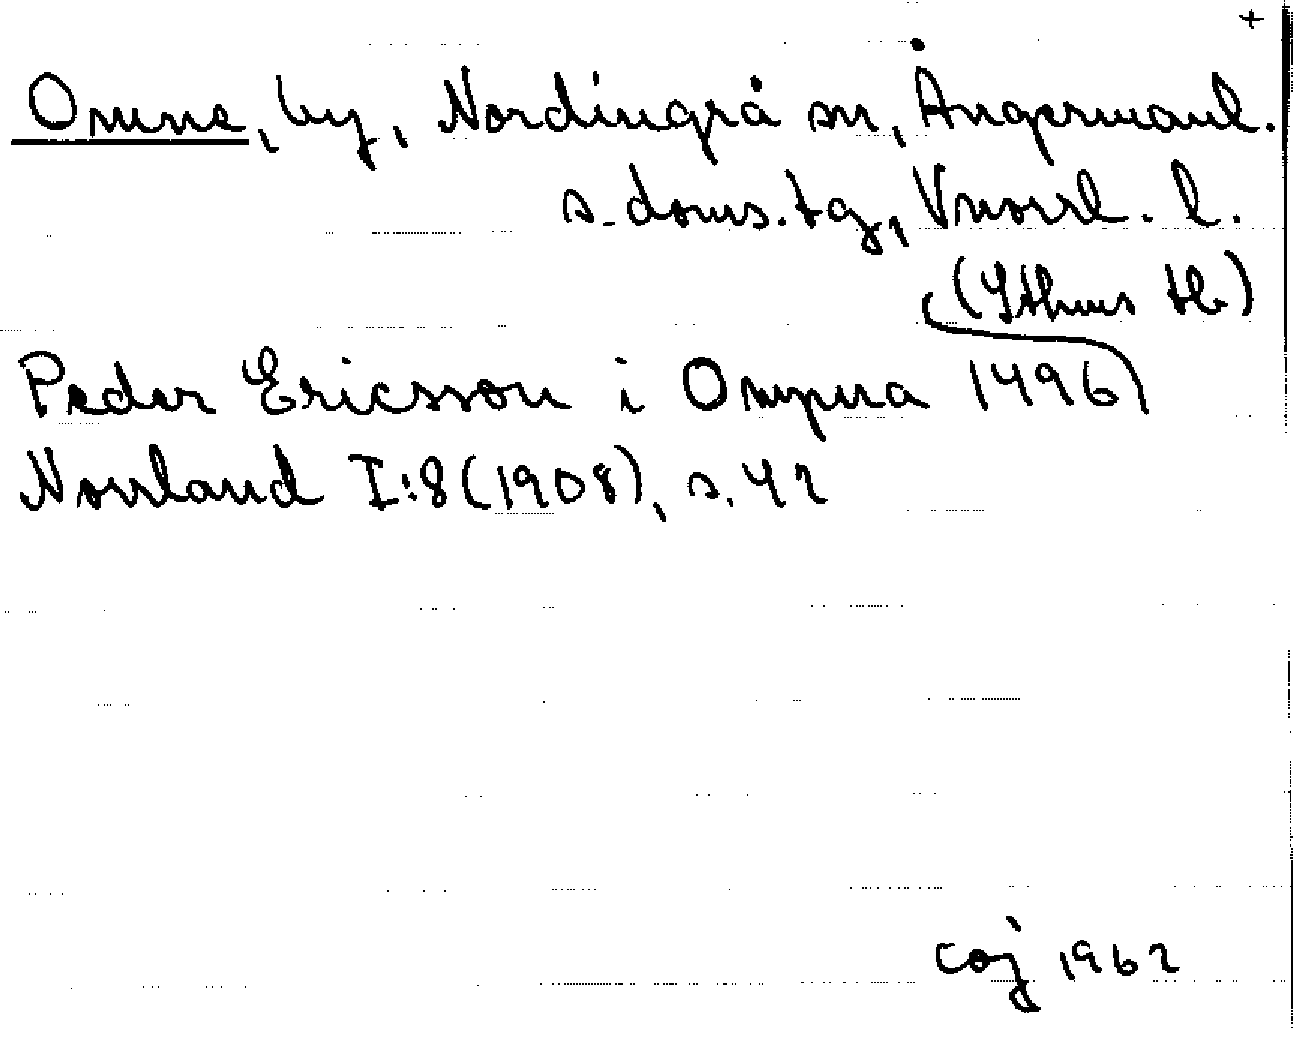 +
Omne, by, Nordingrå sn, Ångermanl.
s. doms. tg, Vnorrl. l.
(Ythms tb)
Peder Ericsson i Ompna 1496)
Norrland I:8 (1908), s. 42
coj 1962